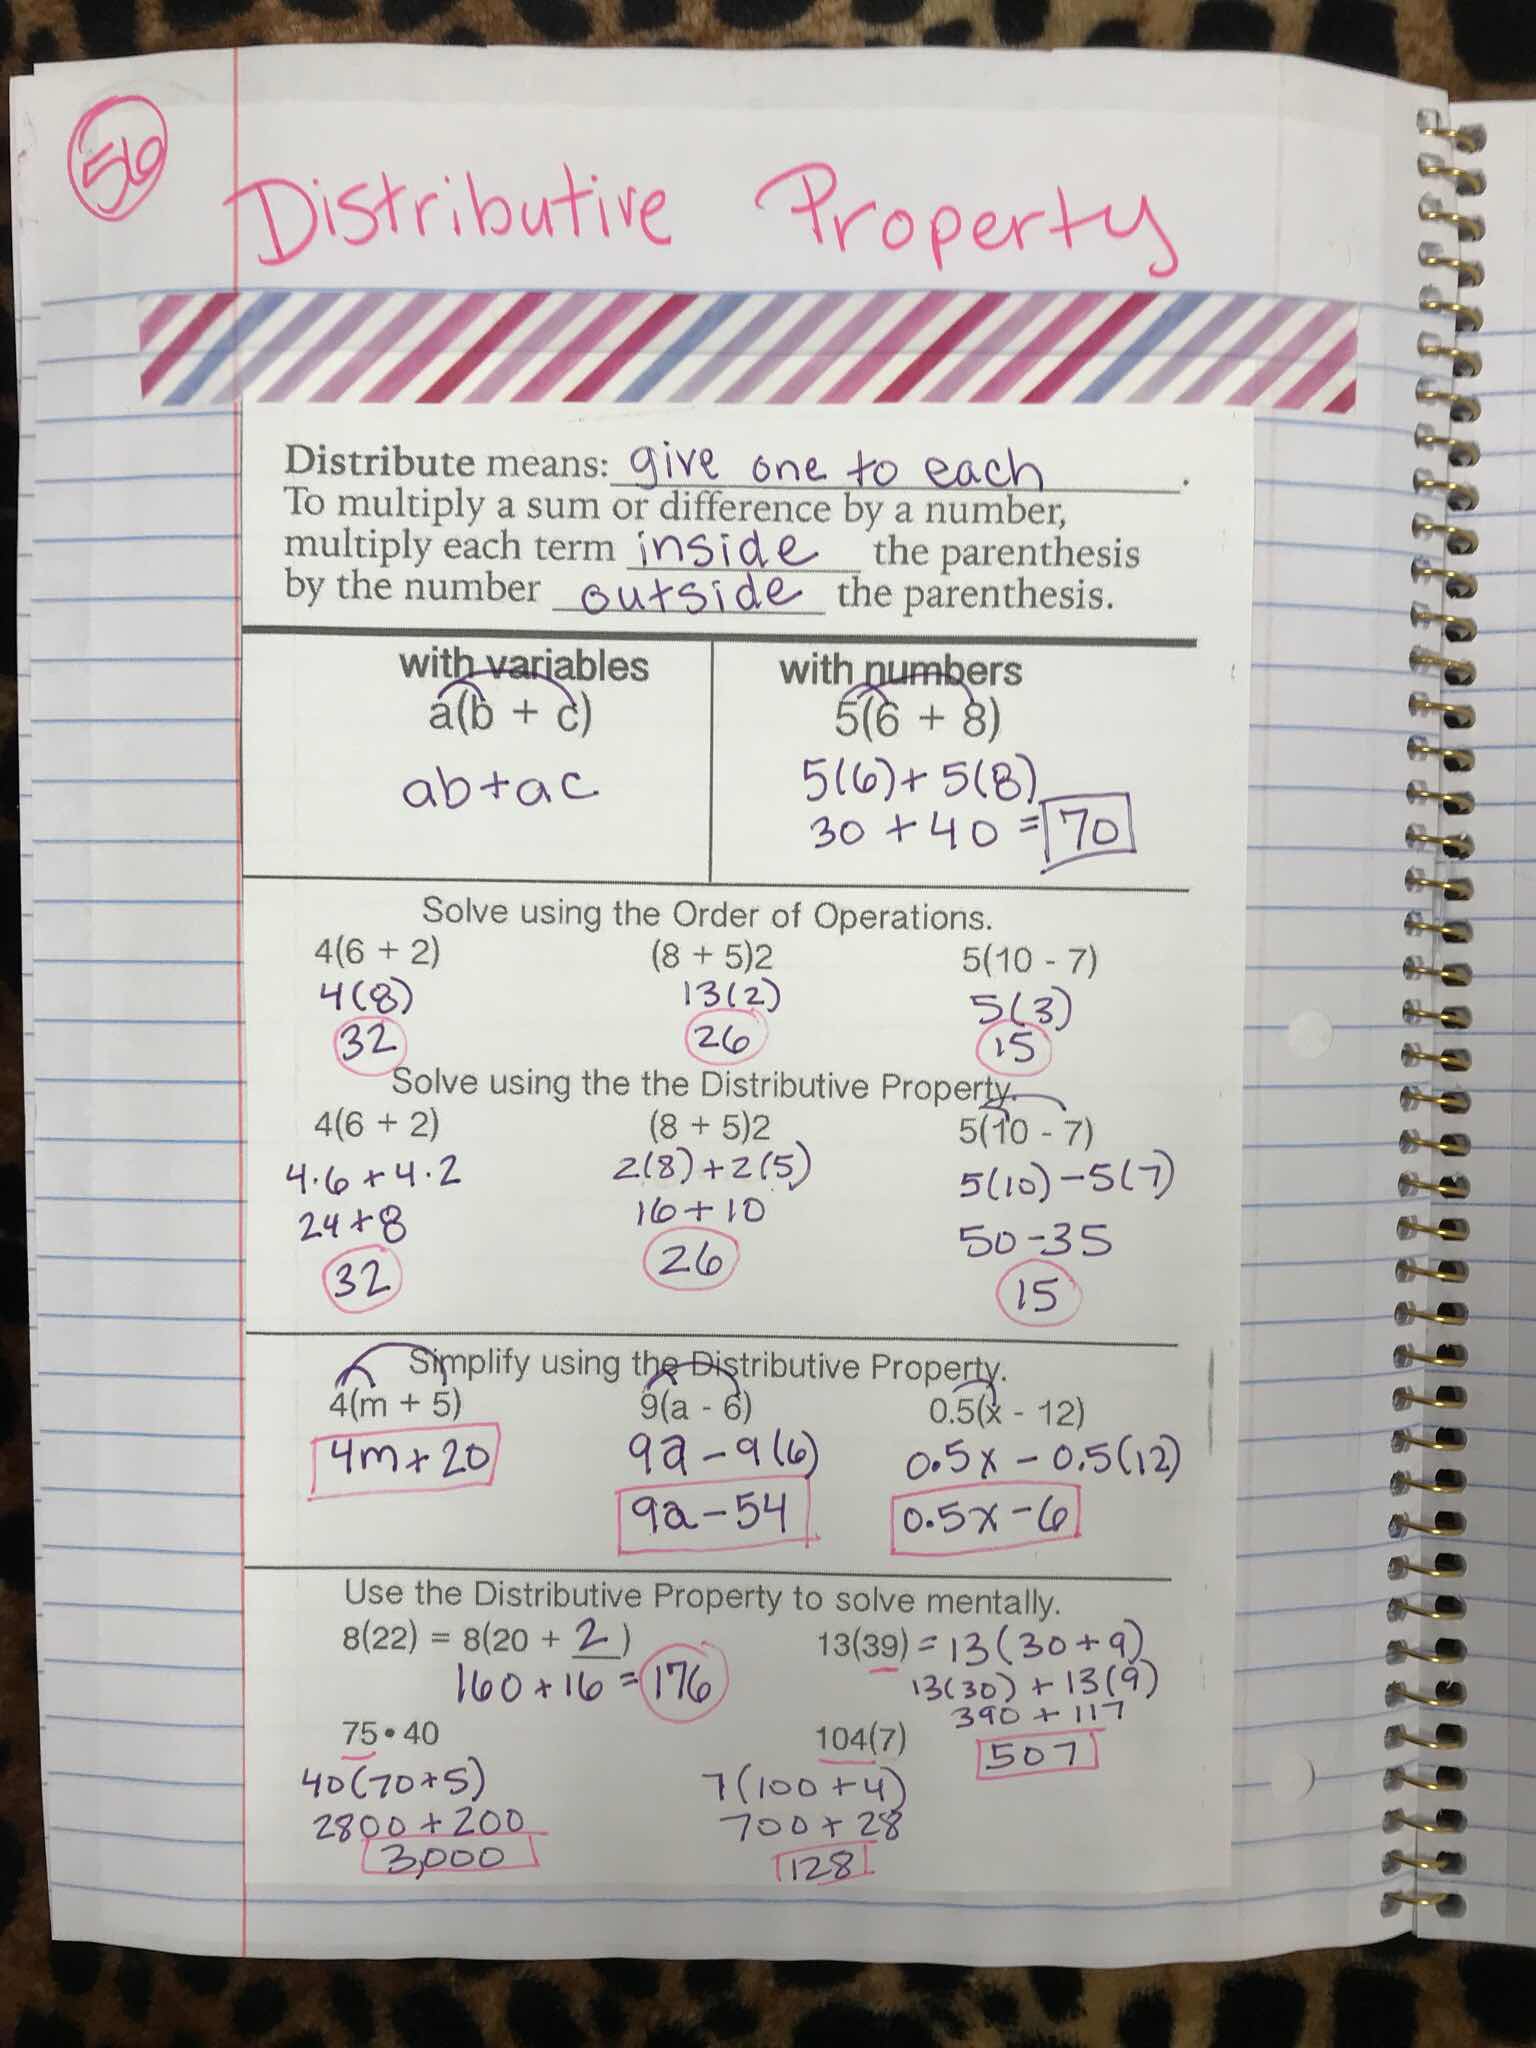 56
Distributive Property
Distribute means: give one to each.
To multiply a sum or difference by a number,
multiply each term inside the parenthesis
by the number outside the parenthesis.
with variables
a(b + c)
ab+ac
with numbers
5(6 + 8)
5(6)+5(8)
30 + 40 = 70
Solve using the Order of Operations.
4(6 + 2)
4(8)
32
(8 + 5)2
13(2)
26
5(10 - 7)
5(3)
15
Solve using the the Distributive Property.
4(6 + 2)
4·6+4·2
24+8
32
(8 + 5)2
2(8)+2(5)
16+10
26
5(10 - 7)
5(10)-5(7)
50-35
15
Simplify using the Distributive Property.
4(m + 5)
4m+20
9(a - 6)
9a-9(6)
9a-54
0.5(x - 12)
0.5x-0.5(12)
0.5x-6
Use the Distributive Property to solve mentally.
8(22) = 8(20 + 2)
160+16 = 176
13(39) = 13(30+9)
13(30) + 13(9)
390 + 117
507
75•40
40(70+5)
2800+200
3,000
104(7)
7(100+4)
700+28
128